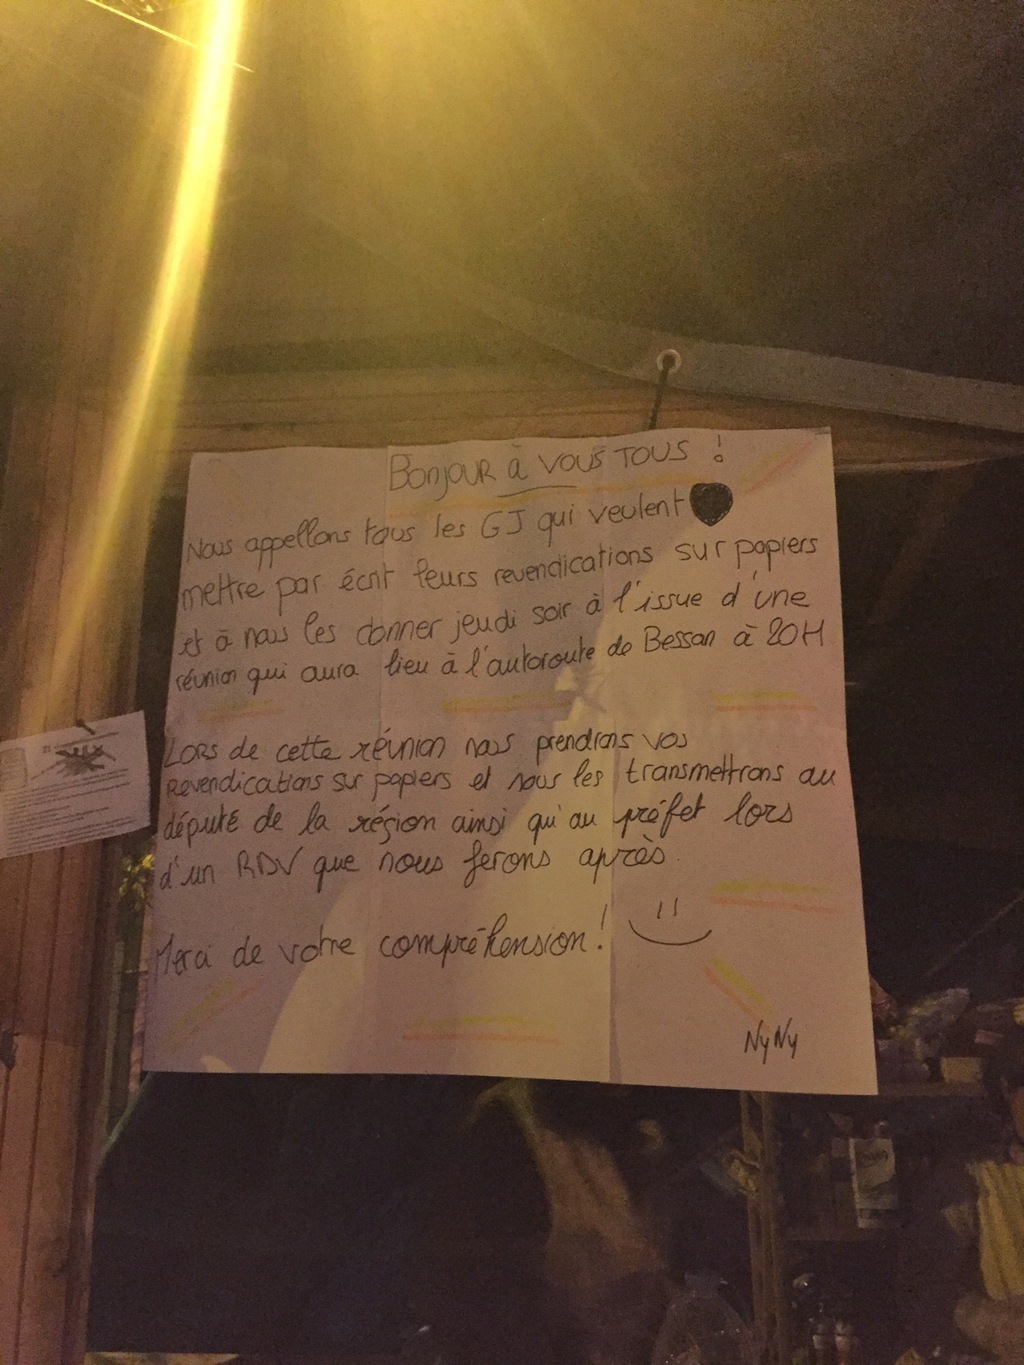 Bonjour à vous tous !
Nous appellons tous les GJ qui veulent
mettre par écrit leurs revendications sur papiers
et à nous les donner jeudi soir à l'issue d'une
réunion qui aura lieu à l'autoroute de Bessan à 20H
Lors de cette réunion nous prendrons vos
revendications sur papiers et nous les transmettrons au
député de la région ainsi qu'au préfet lors
d'un RDV que nous ferons après.
Merci de votre compréhension !
NyNy